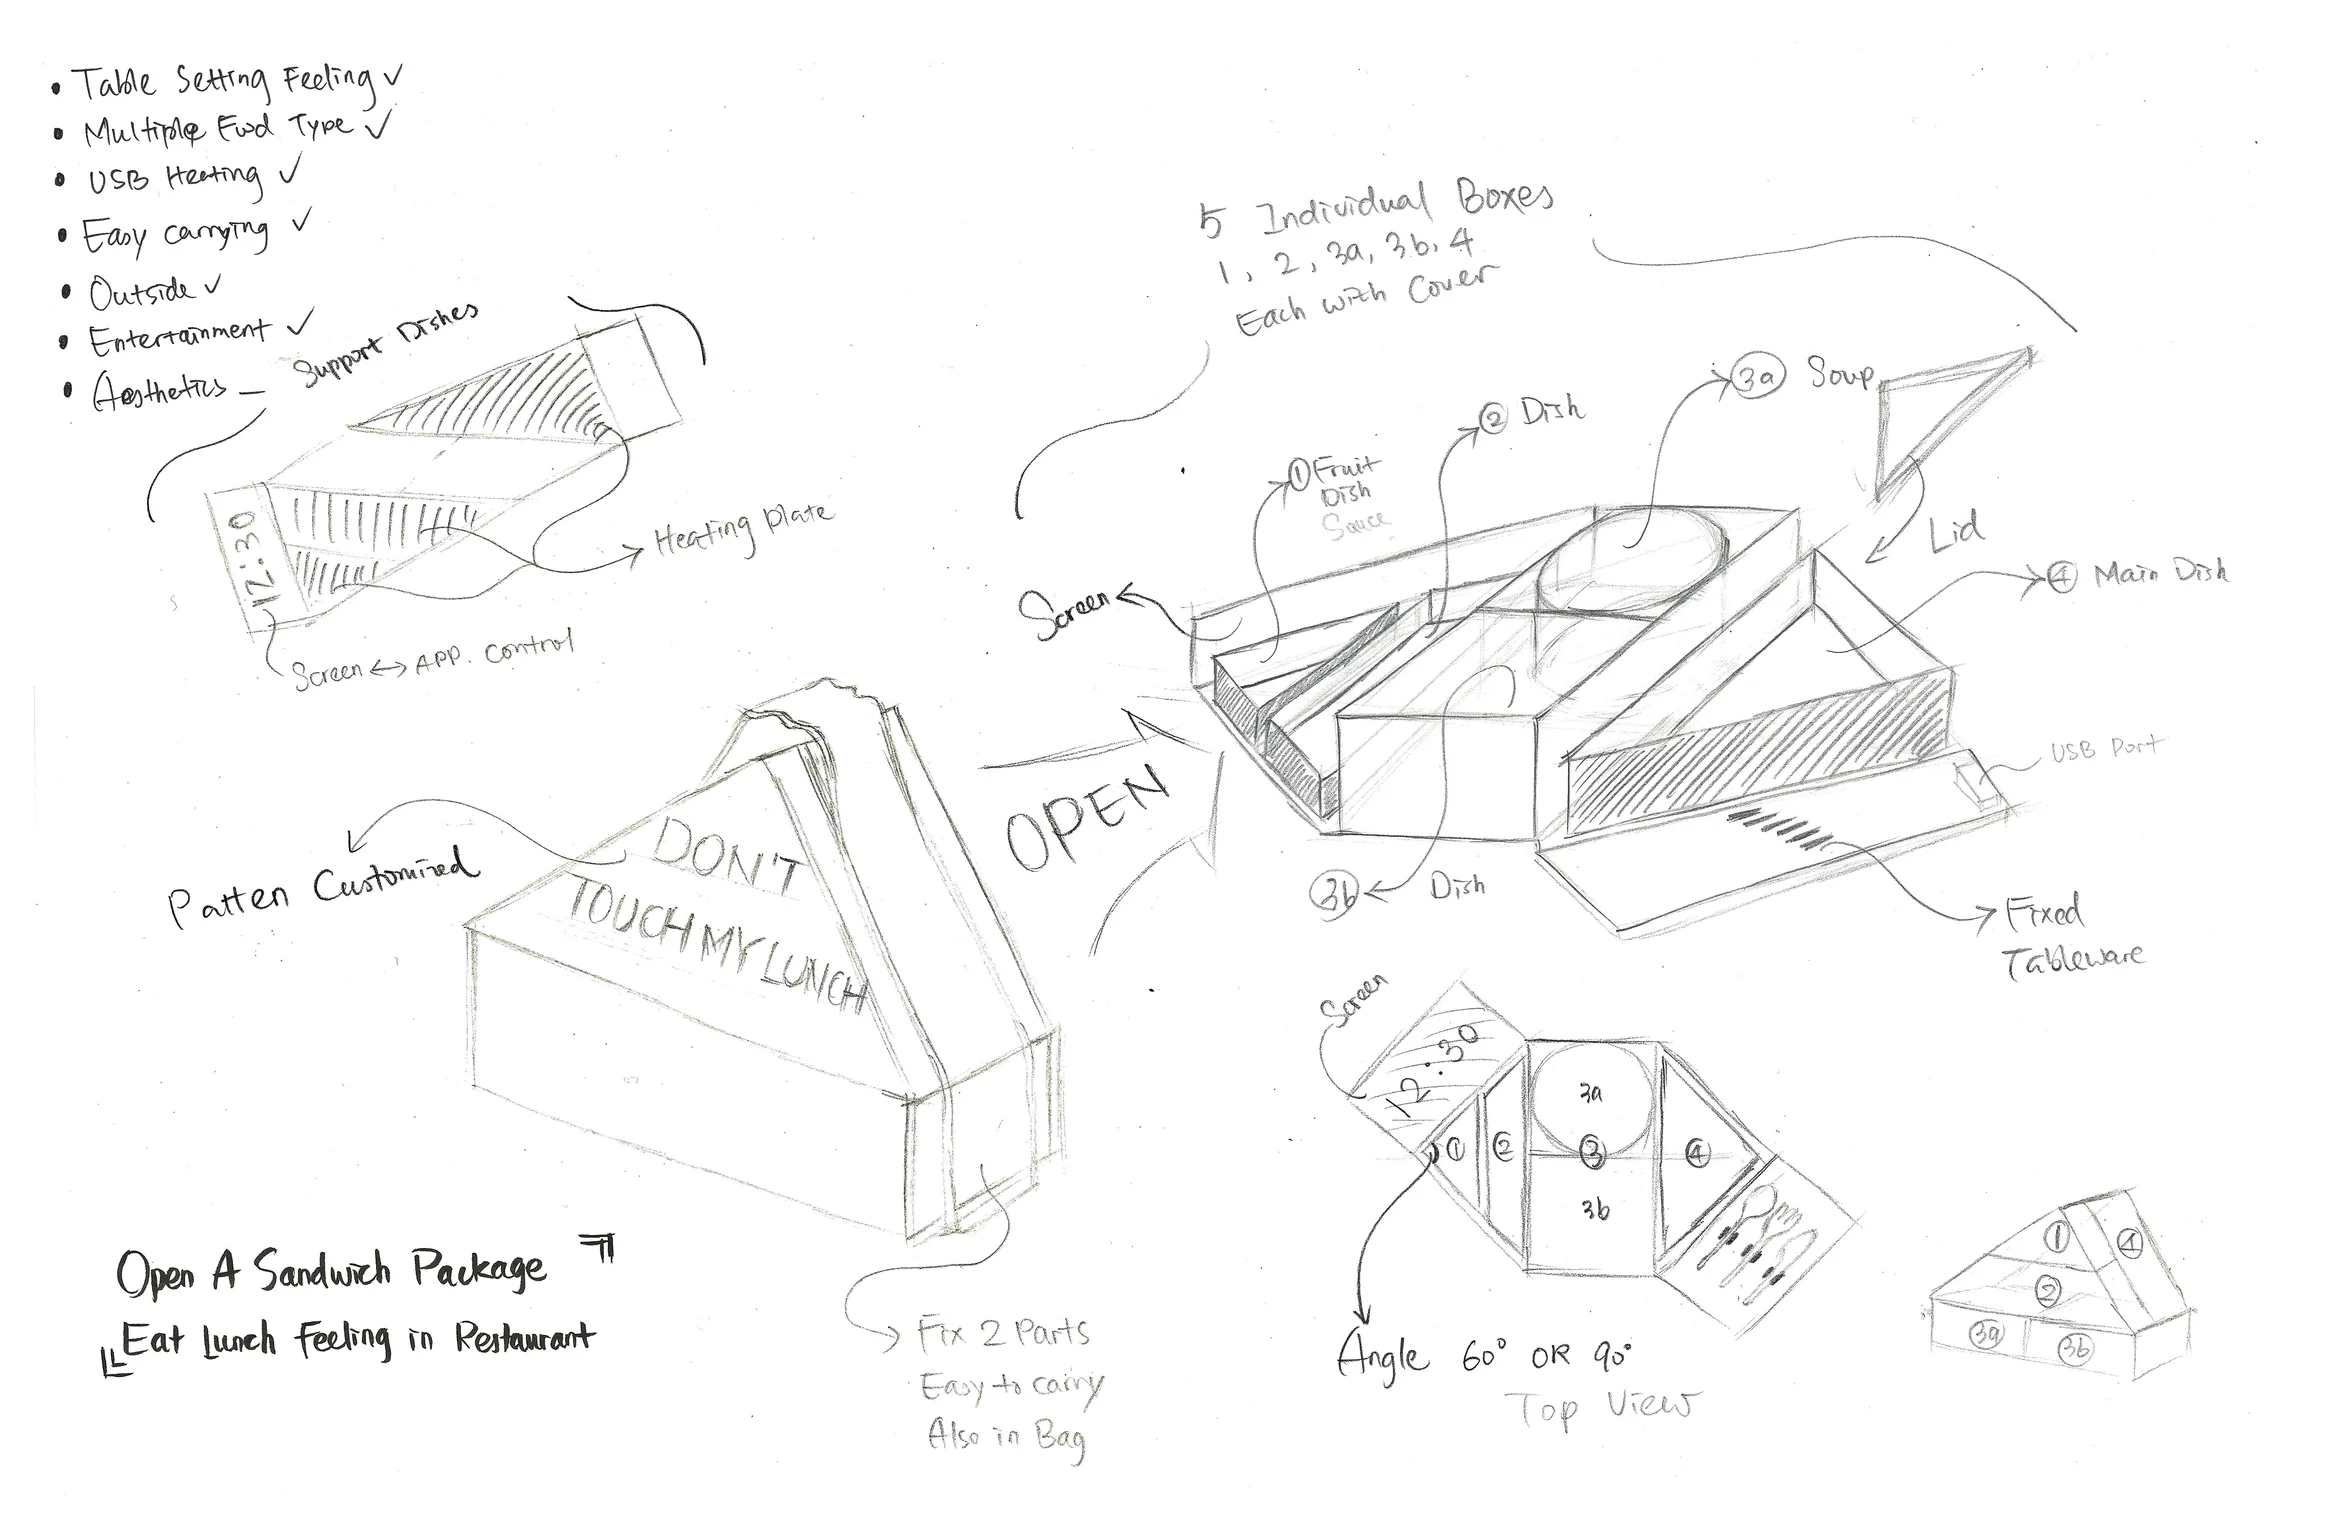 • Table Setting Feeling ✓
• Multiple Food Type ✓
• USB Heating ✓
• Easy carrying ✓
• Outside ✓
• Entertainment ✓
• Aesthetics –
Support Dishes
12:30
Heating plate
Screen ↔ APP. control
Patten Customized
DON'T
TOUCH MY LUNCH
Open A Sandwich Package
Eat Lunch Feeling in Restaurant
Fix 2 Parts
Easy to carry
Also in Bag
OPEN
5 Individual Boxes
1, 2, 3a, 3b, 4
Each with Cover
Screen
① Fruit
Dish
Sauce
② Dish
3a Soup
Lid
④ Main Dish
USB Port
Fixed
Tableware
3b Dish
Screen
12:30
① ② 3a
③ ④
3b
Angle 60° OR 90°
Top View
① ④
②
3a 3b